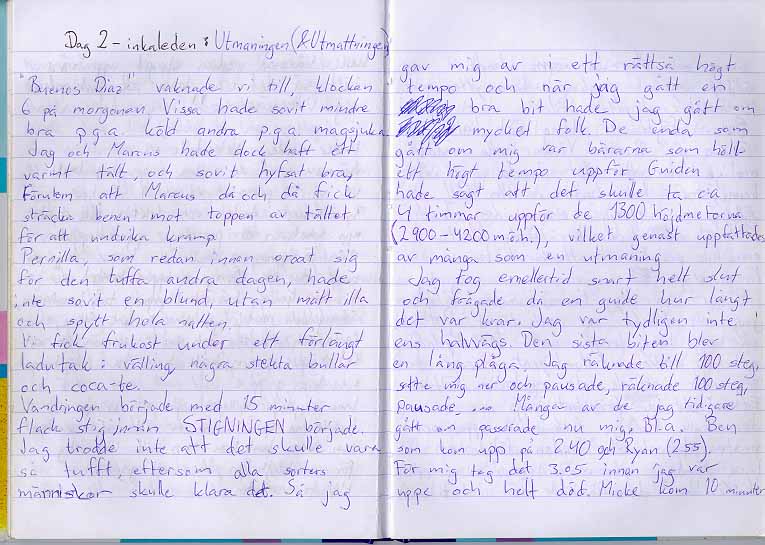 Dag 2 - inkaleden : Utmaningen (& Utmattningen)
"Buenos Diaz" vaknade vi till, klockan
6 på morgonen. Vissa hade sovit mindre
bra p.g.a. köld andra p.g.a. magsjuka.
Jag och Marcus hade dock haft ett
varmt tält, och sovit hyfsat bra,
förutom att Marcus då och då fick
sträcka benen mot toppen av tältet
för att undvika kramp.
Pernilla, som redan innan oroat sig
för den tuffa andra dagen, hade
inte sovit en blund, utan mått illa
och spytt hela natten.
Vi fick frukost under ett förlängt
ladutak: välling, några stekta bullar
och coca-te.
Vandringen började med 15 minuter
flack stig innan STIGNINGEN började.
Jag trodde inte att det skulle vara
så tufft, eftersom alla sorters
människor skulle klara det. Så jag
gav mig av i ett rättså högt
tempo och när jag gått en
bra bit hade jag gått om
mycket folk. De enda som
gått om mig var bärarna som höll
ett högt tempo uppför. Guiden
hade sagt att det skulle ta c:a
4 timmar uppför de 1300 höjdmeterna
(2900-4200 m.ö.h.), vilket genast uppfattades
av många som en utmaning
Jag tog emellertid snart helt slut
och frågade då en guide hur långt
det var kvar. Jag var tydligen inte
ens halvvägs. Den sista biten blev
en lång plåga. Jag räknade till 100 steg,
satte mig ner och pausade, räknade 100 steg,
pausade ... Många av de jag tidigare
gått om passerade nu mig, Bl.a. Ben
som kom upp på 2.40 och Ryan (2.55).
För mig tog det 3.05 innan jag var
uppe och helt död. Micke kom 10 minuter